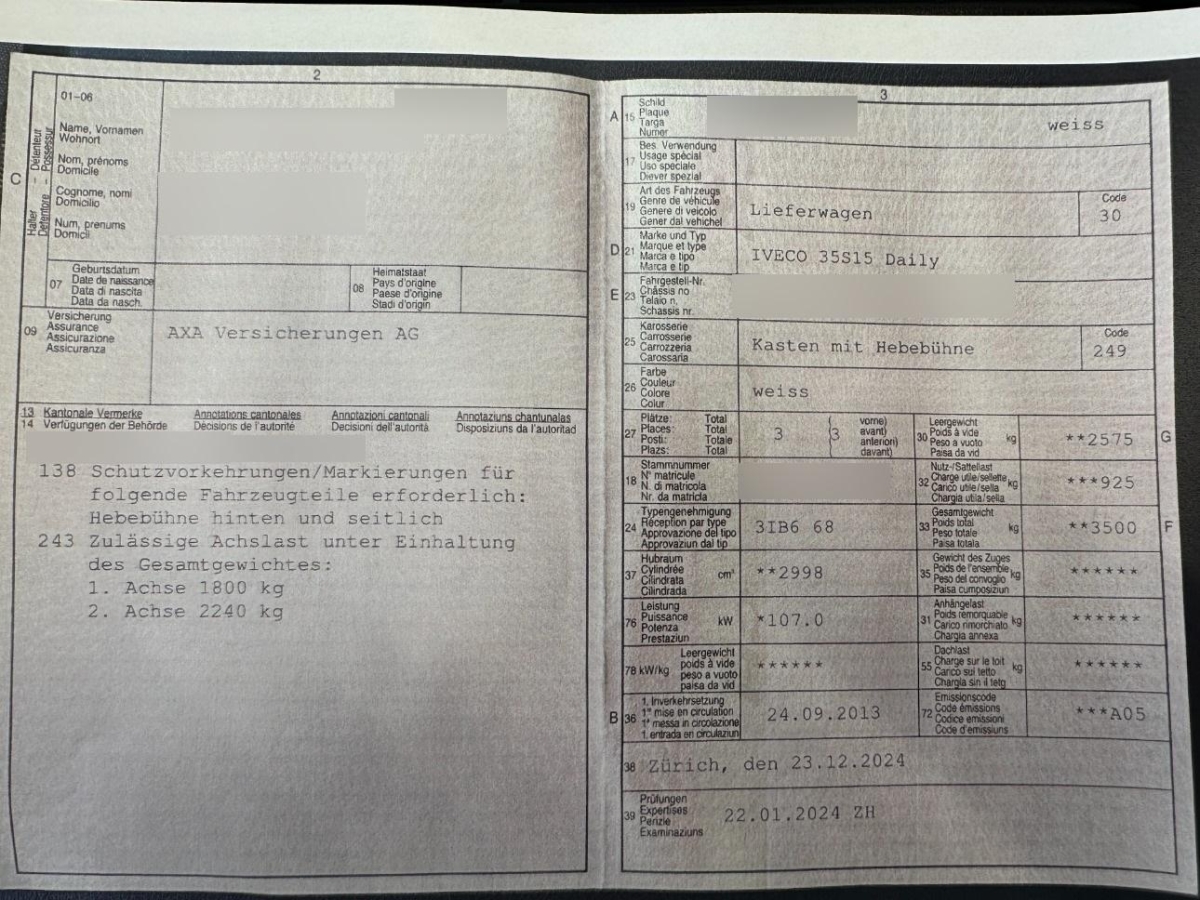 2
01-06
Name, Vornamen
Wohnort
Nom, prénoms
Domicile
Cognome, nomi
Domicilio
Num, prenums
Domicil
C
Halter - Détenteur
Detentore - Possessur
07
Geburtsdatum
Date de naissance
Data di nascita
Data da nasch.
08
Heimatstaat
Pays d'origine
Paese d'origine
Stadi d'origin
09
Versicherung
Assurance
Assicurazione
Assicuranza
AXA Versicherungen AG
13 Kantonale Vermerke Annotations cantonales Annotazioni cantonali Annotaziuns chantunalas
14 Verfügungen der Behörde Décisions de l'autorité Decisioni dell'autorità Disposiziuns da l'autoritad
138 Schutzvorkehrungen/Markierungen für
folgende Fahrzeugteile erforderlich:
Hebebühne hinten und seitlich
243 Zulässige Achslast unter Einhaltung
des Gesamtgewichtes:
1. Achse 1800 kg
2. Achse 2240 kg
3
A 15
Schild
Plaque
Targa
Numer
weiss
17
Bes. Verwendung
Usage spécial
Uso speciale
Diever spezial
19
Art des Fahrzeugs
Genre de véhicule
Genere di veicolo
Gener dal vehichel
Lieferwagen
Code
30
D 21
Marke und Typ
Marque et type
Marca e tipo
Marca e tip
IVECO 35S15 Daily
E 23
Fahrgestell-Nr.
Châssis no
Telaio n.
Schassis nr.
25
Karosserie
Carrosserie
Carrozzeria
Carossaria
Kasten mit Hebebühne
Code
249
26
Farbe
Couleur
Colore
Colur
weiss
27
Plätze: Total
Places: Total
Posti: Totale
Plazs: Total
3
(3
vorne)
avant)
anteriori)
davant)
30
Leergewicht
Poids à vide
Peso a vuoto
Paisa da vid
kg
**2575
G
18
Stammnummer
N° matricule
N. di matricola
Nr. da matricla
32
Nutz-/Sattellast
Charge utile/sellette
Carico utile/sella
Chargia utila/sella
kg
***925
24
Typengenehmigung
Réception par type
Approvazione del tipo
Approvaziun dal tip
3IB6 68
33
Gesamtgewicht
Poids total
Peso totale
Paisa totala
kg
**3500
F
37
Hubraum
Cylindrée
Cilindrata
Cilindrada
cm³
**2998
35
Gewicht des Zuges
Poids de l'ensemble
Peso del convoglio
Paisa cumposiziun
kg
******
76
Leistung
Puissance
Potenza
Prestaziun
kW
*107.0
31
Anhängelast
Poids remorquable
Carico rimorchiato
Chargia annexa
kg
******
78 kW/kg
Leergewicht
poids à vide
peso a vuoto
paisa da vid
******
55
Dachlast
Charge sur le toit
Carico sul tetto
Chargia sin il tetg
kg
******
B 36
1. Inverkehrsetzung
1re mise en circulation
1a messa in circolazione
1. entrada en circulaziun
24.09.2013
72
Emissionscode
Code émissions
Codice emissioni
Code d'emissiuns
***A05
38 Zürich, den 23.12.2024
39
Prüfungen
Expertises
Perizie
Examinaziuns
22.01.2024 ZH